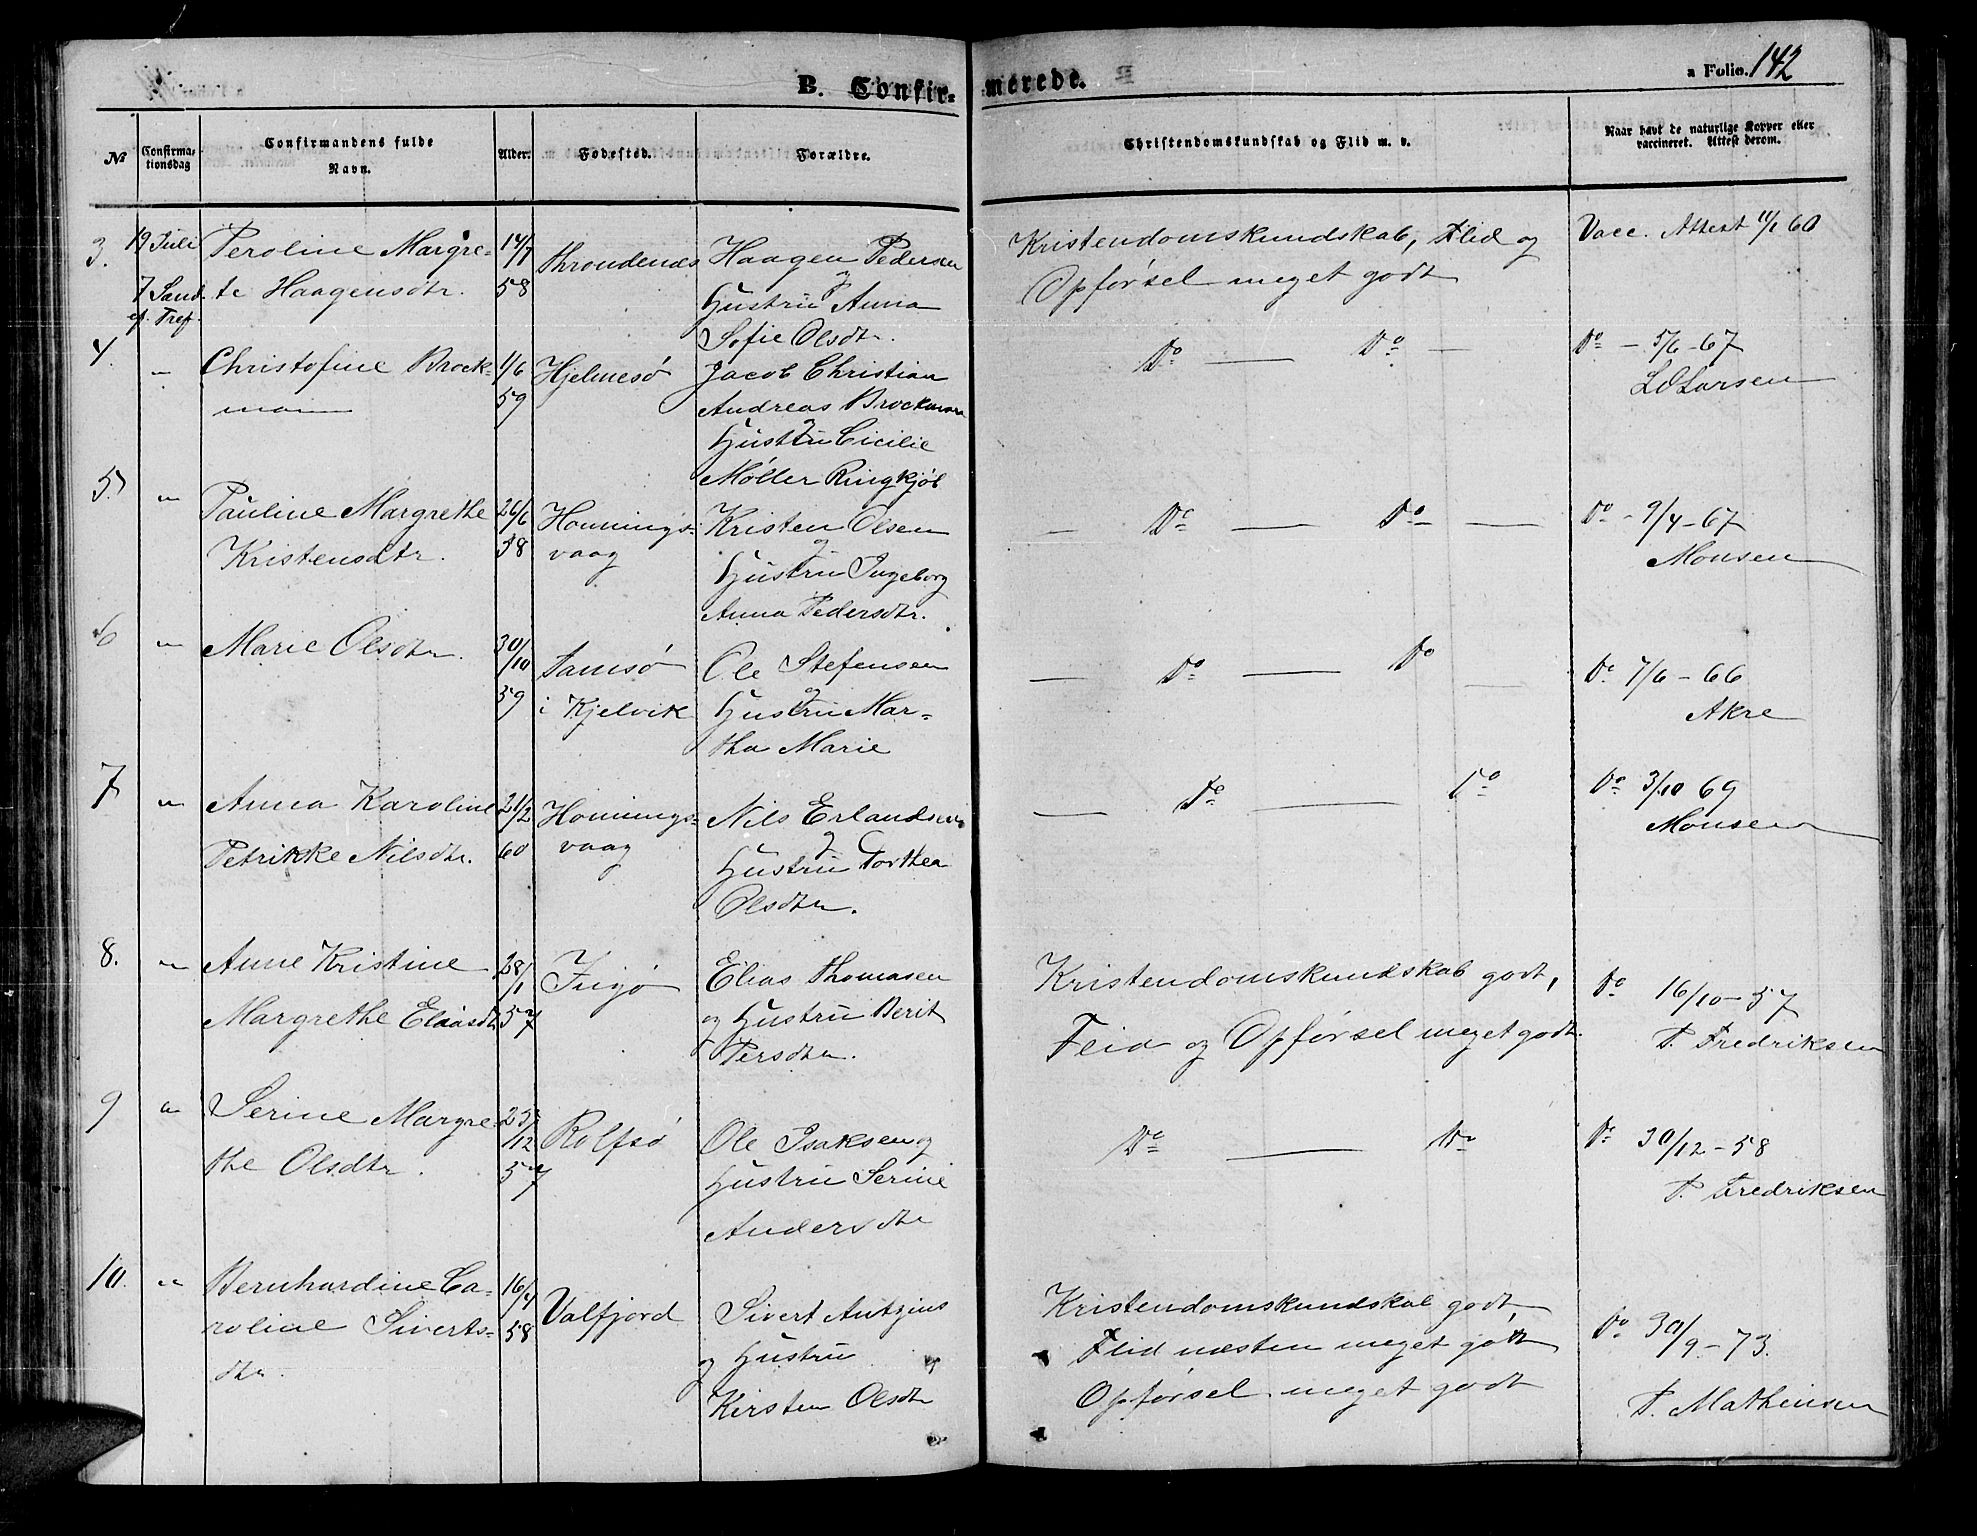 B. Confirmerede.
a Folio. 142
№
Confirmationsdag
Confirmandens fulde Navn.
Alder.
Fødested.
Forældre.
Christendomskundskab og Flid m. v.
Naar havt de naturlige Kopper eller vaccineret. Attest derom.
3.
19 Juli
7 Sønd.
ef. Tref.
Peroline Margre-
te Haagensdtr.
14/7
58
Throndenæs
Haagen Pedersen
og
Hustru Anna
Sofie Olsdtr.
Kristendomskundskab, Flid og
Opførsel meget godt
Vacc. Attest 11/1 60
4.
"
Christofine Brock-
mann
1/6
59
Hjelmesø
Jacob Christian
Andreas Brockmann
og
Hustru Cicilie
Møller Ringkjøb
Do — Do —
Do — 5/6 - 67
LOLarsen
5.
"
Pauline Margrethe
Kristensdtr.
26/6
58
Honnings-
vaag
Kristen Olsen
og
Hustru Ingeborg
Anna Pedersdtr.
— Do — Do —
Do - 9/4 - 67
Monsen
6
"
Marie Olsdtr.
30/10
59
Tamsø
i Kjelvik
Ole Stefensen
og
Hustru Mar-
tha Marie
— Do — Do —
Do 7/6 - 66
Akre
7
"
Anna Karoline
Petrikke Nilsdtr.
21/2
60
Honnings-
vaag
Nils Erlandsen
og
Hustru Torthea
Olsdtr.
— Do — Do
Do 3/10 69
Monsen
8.
"
Anne Kristine
Margrethe Eliasdtr
28/1
57
Ingø
Elias Thomasen
og Hustru Berit
Persdtr.
Kristendomskundskab godt,
Flid og Opførsel meget godt.
Do 16/10 - 57
P. Fredriksen
9
"
Serine Margre-
the Olsdtr.
25/12
57
Rolfsø
Ole Isaksen og
Hustru Serine
Andersdtr
Do — Do
Do 30/12 - 58
P. Fredriksen
10.
"
Bernhardine Ca-
roline Siverts-
dtr.
16/4
58
Valfjord
Sivert Antzius
og Hustru
Kirsten Olsdtr
Kristendomskundskab godt,
Flid næsten meget godt
Opførsel meget godt
Do 30/9 - 73.
P. Mathiesen